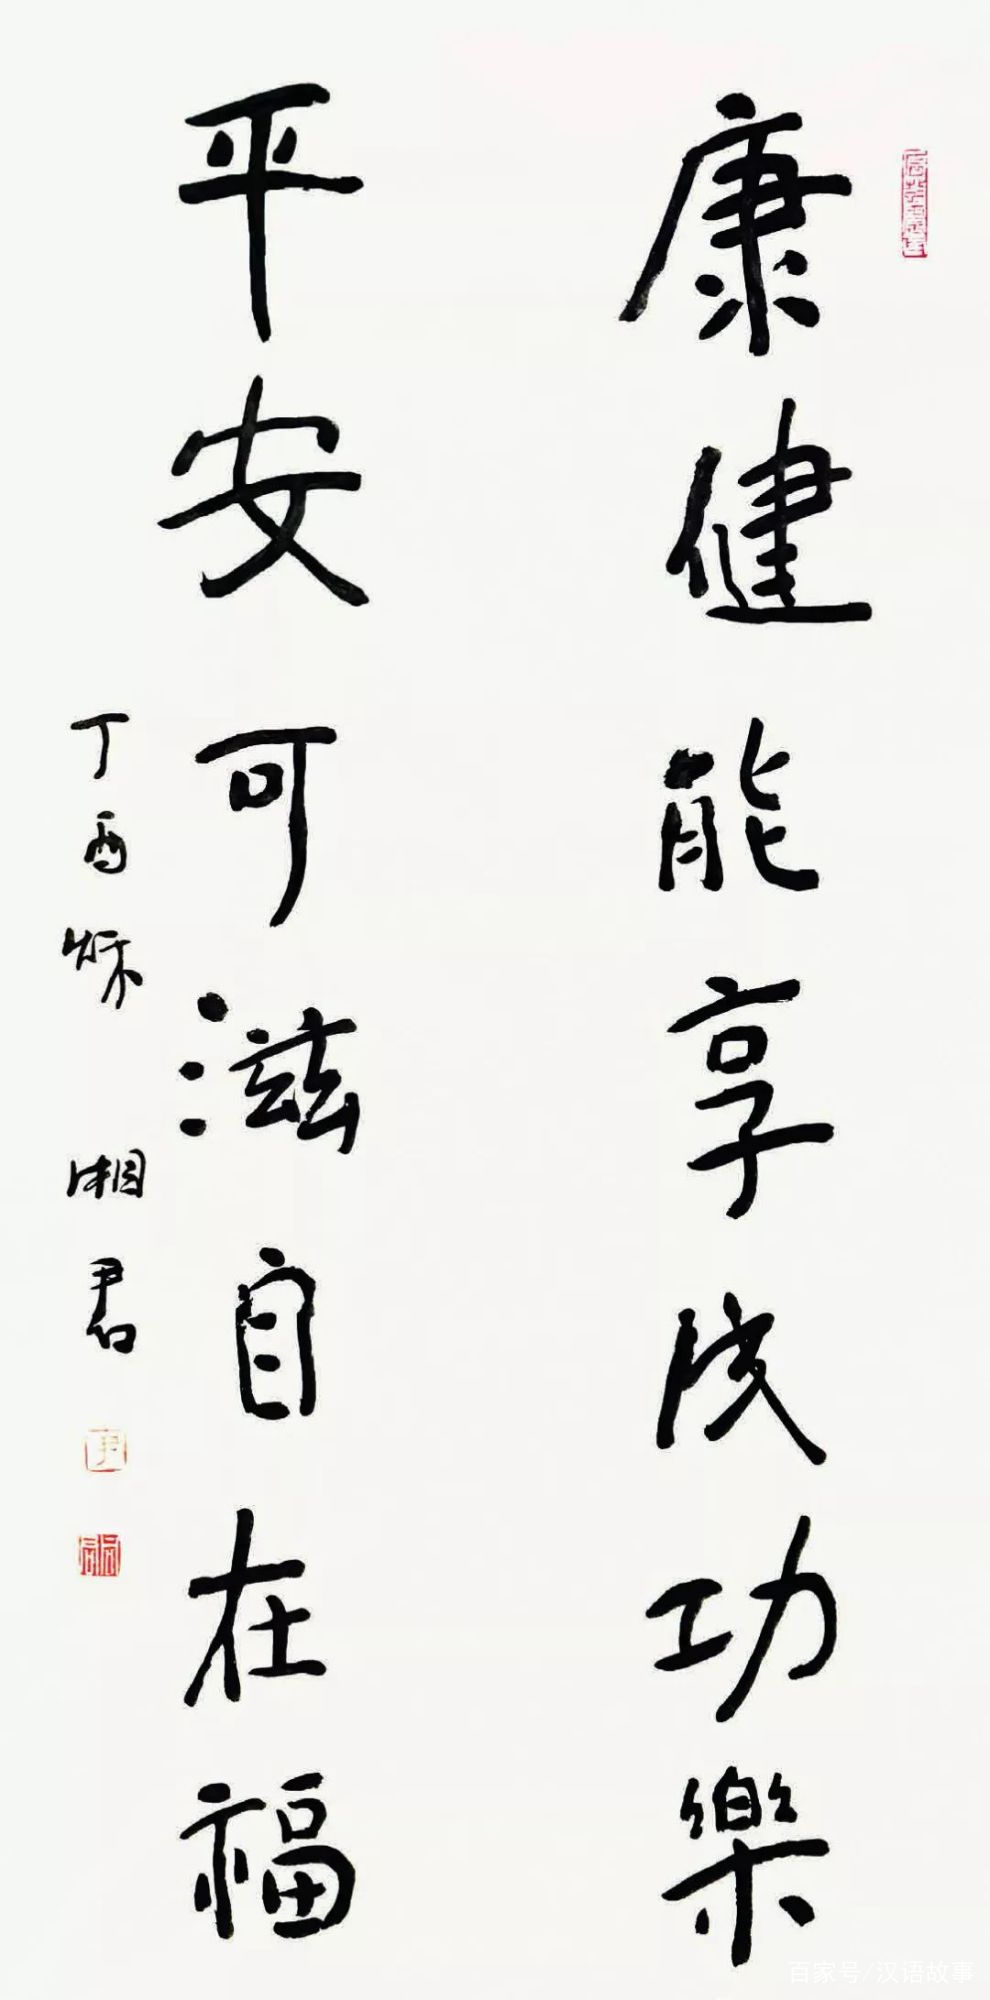 康健能享成功樂
平安可滋自在福
丁酉秌
湘君
百家号/汉语故事